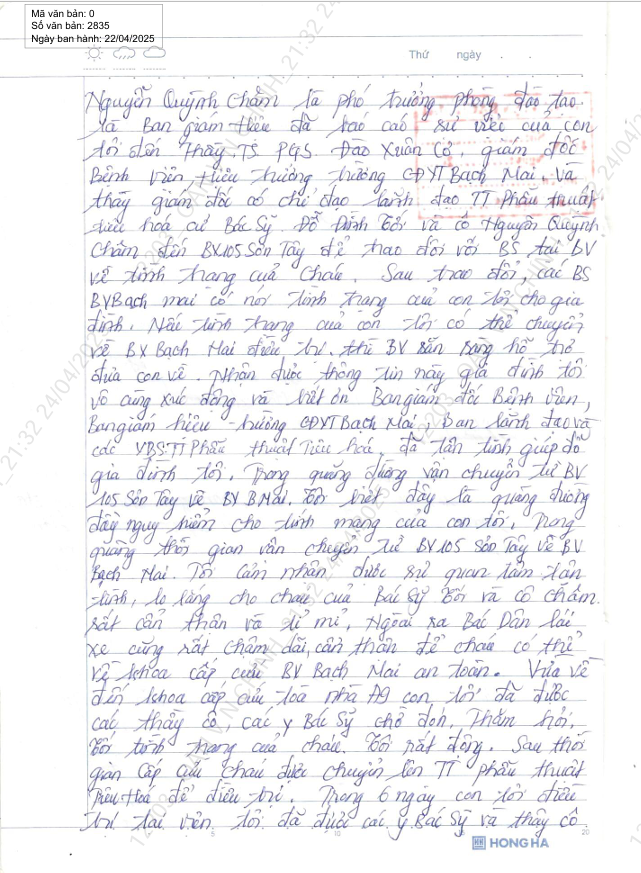 Mã văn bản: 0
Số văn bản: 2835
Ngày ban hành: 22/04/2025
Thứ ngày . .
Nguyễn Quỳnh Châm là phó trưởng phòng đào tạo
là Ban giám hiệu đã báo cáo sự việc của con
tôi đến thầy TS PGS Đào Xuân Cơ giám đốc
Bệnh viện, hiệu trưởng trường CĐYT Bạch Mai. Và
thầy giám đốc có chỉ đạo lãnh đạo TT Phẫu thuật
tiêu hoá cử Bác Sỹ Đỗ Đình Tới và cô Nguyễn Quỳnh
Châm đến BV105 Sơn Tây để trao đổi với BS tại BV
về tình trạng của Cháu. Sau trao đổi, các BS
BVBạch mai có nói tình trạng của con tôi cho gia
đình. Nếu tình trạng của con tôi có thể chuyển
về BV Bạch Mai điều trị. thì BV sẵn sàng hỗ trợ
đưa con về. Nhận được thông tin này gia đình tôi
vô cùng xúc động và biết ơn Ban giám đốc Bệnh viện,
Ban giám hiệu trường CĐYT Bạch Mai, Ban lãnh đạo và
các YBS TT Phẫu thuật Tiêu hoá, đã tận tình giúp đỡ
gia đình tôi. Trong quãng đường vận chuyển từ BV
105 Sơn Tây về BV BMai. Tôi biết đây là quãng đường
đầy nguy hiểm cho tính mạng của con tôi. Trong
quãng thời gian vận chuyển từ BV105 Sơn Tây về BV
Bạch Mai. Tôi cảm nhận được sự quan tâm tận
tình, lo lắng cho cháu của Bác Sỹ Tới và cô Châm
rất cẩn thận và tỉ mỉ, Ngoài ra Bác Dân lái
xe cũng rất chậm dãi, cẩn thận để cháu có thể
về khoa cấp cứu BV Bạch Mai an toàn. Vừa về
đến khoa cấp cứu toà nhà A9 con tôi đã được
các thầy cô, các y Bác Sỹ chờ đón. Thăm hỏi,
tình trạng của cháu. Tôi rất động. Sau thời
gian Cấp cứu cháu được chuyển lên TT phẫu thuật
Tiêu Hoá để điều trị. Trong 6 ngày con tôi điều
trị tại viện, tôi đã được các y Bác Sỹ và thầy cô
HONG HA